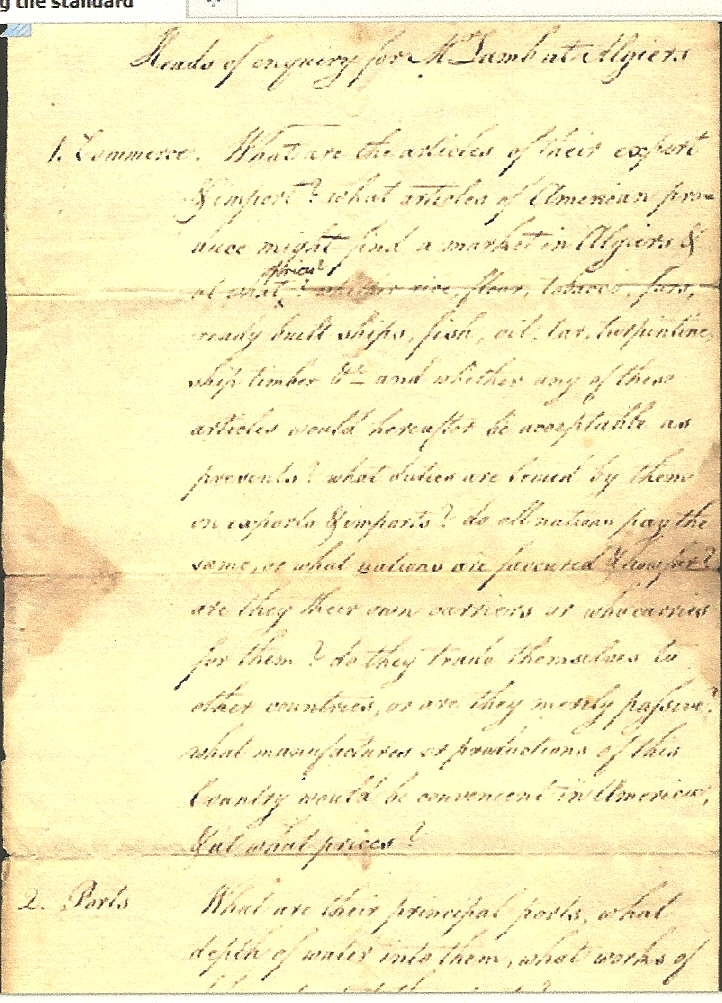 g the standard
Heads of enquiry for Mr Lamb at Algiers
1. Commerce. What are the articles of their export
& import? what articles of American pro-
duce might find a market in Algiers &
at what prices? whether rice, flour, tobacco, furs,
ready built ships, fish, oil, tar, turpentine,
ship timber &c and whether any of these
articles would hereafter be acceptable as
presents? what duties are levied by them
on exports & imports? do all nations pay the
same, or what nations are favoured & how far?
are they their own carriers or who carries
for them? do they trade themselves to
other countries, or are they merely passive?
what manufactures or productions of this
Country would be convenient in America,
& at what prices?
2. Ports What are their principal ports, what
depth of water into them, what works of